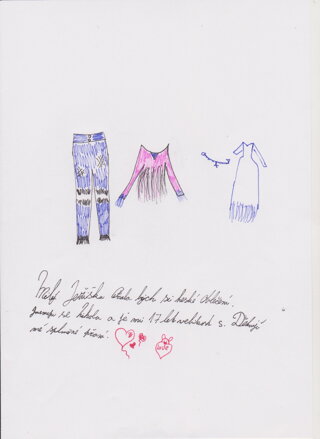 Milý Ježíšku přála bych si hezké oblečení.
Jmenuji se Nikola a je mi 17 let velikost s. Děkuji
mé splněné přání.